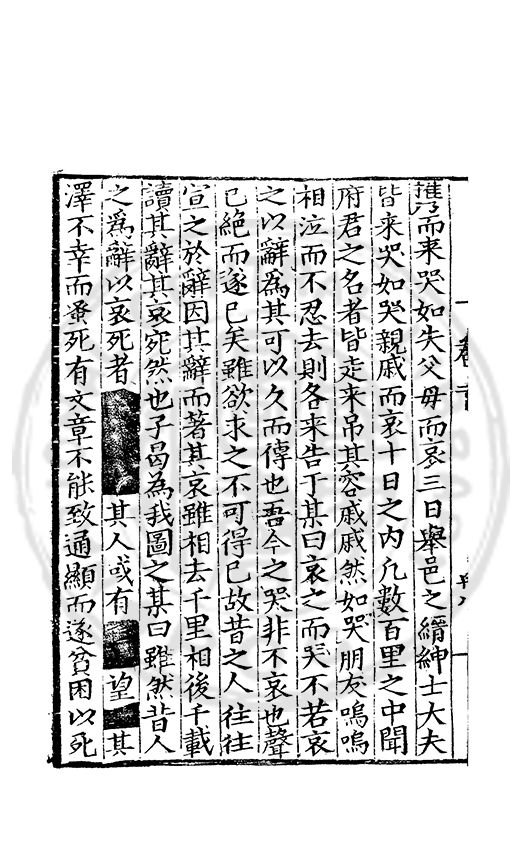 携而来哭如失父母而哀三日舉邑之縉紳士大夫
皆来哭如哭親戚而哀十日之内凢數百里之中聞
府君之名者皆走来吊其容戚戚然如哭朋友嗚嗚
相泣而不忍去則各来告于某曰哀之而哭不若哀
之以辭為其可以久而傳也吾今之哭非不哀也聲
已絶而遂已矣雖欲求之不可得已故昔之人往往
宣之於辭因其辭而著其哀雖相去千里相後千載
讀其辭其哀宛然也子曷為我圖之某曰雖然昔人
之爲辭以哀死者其人或有望其
澤不幸而蚤死有文章不能致通顯而遂貧困以死